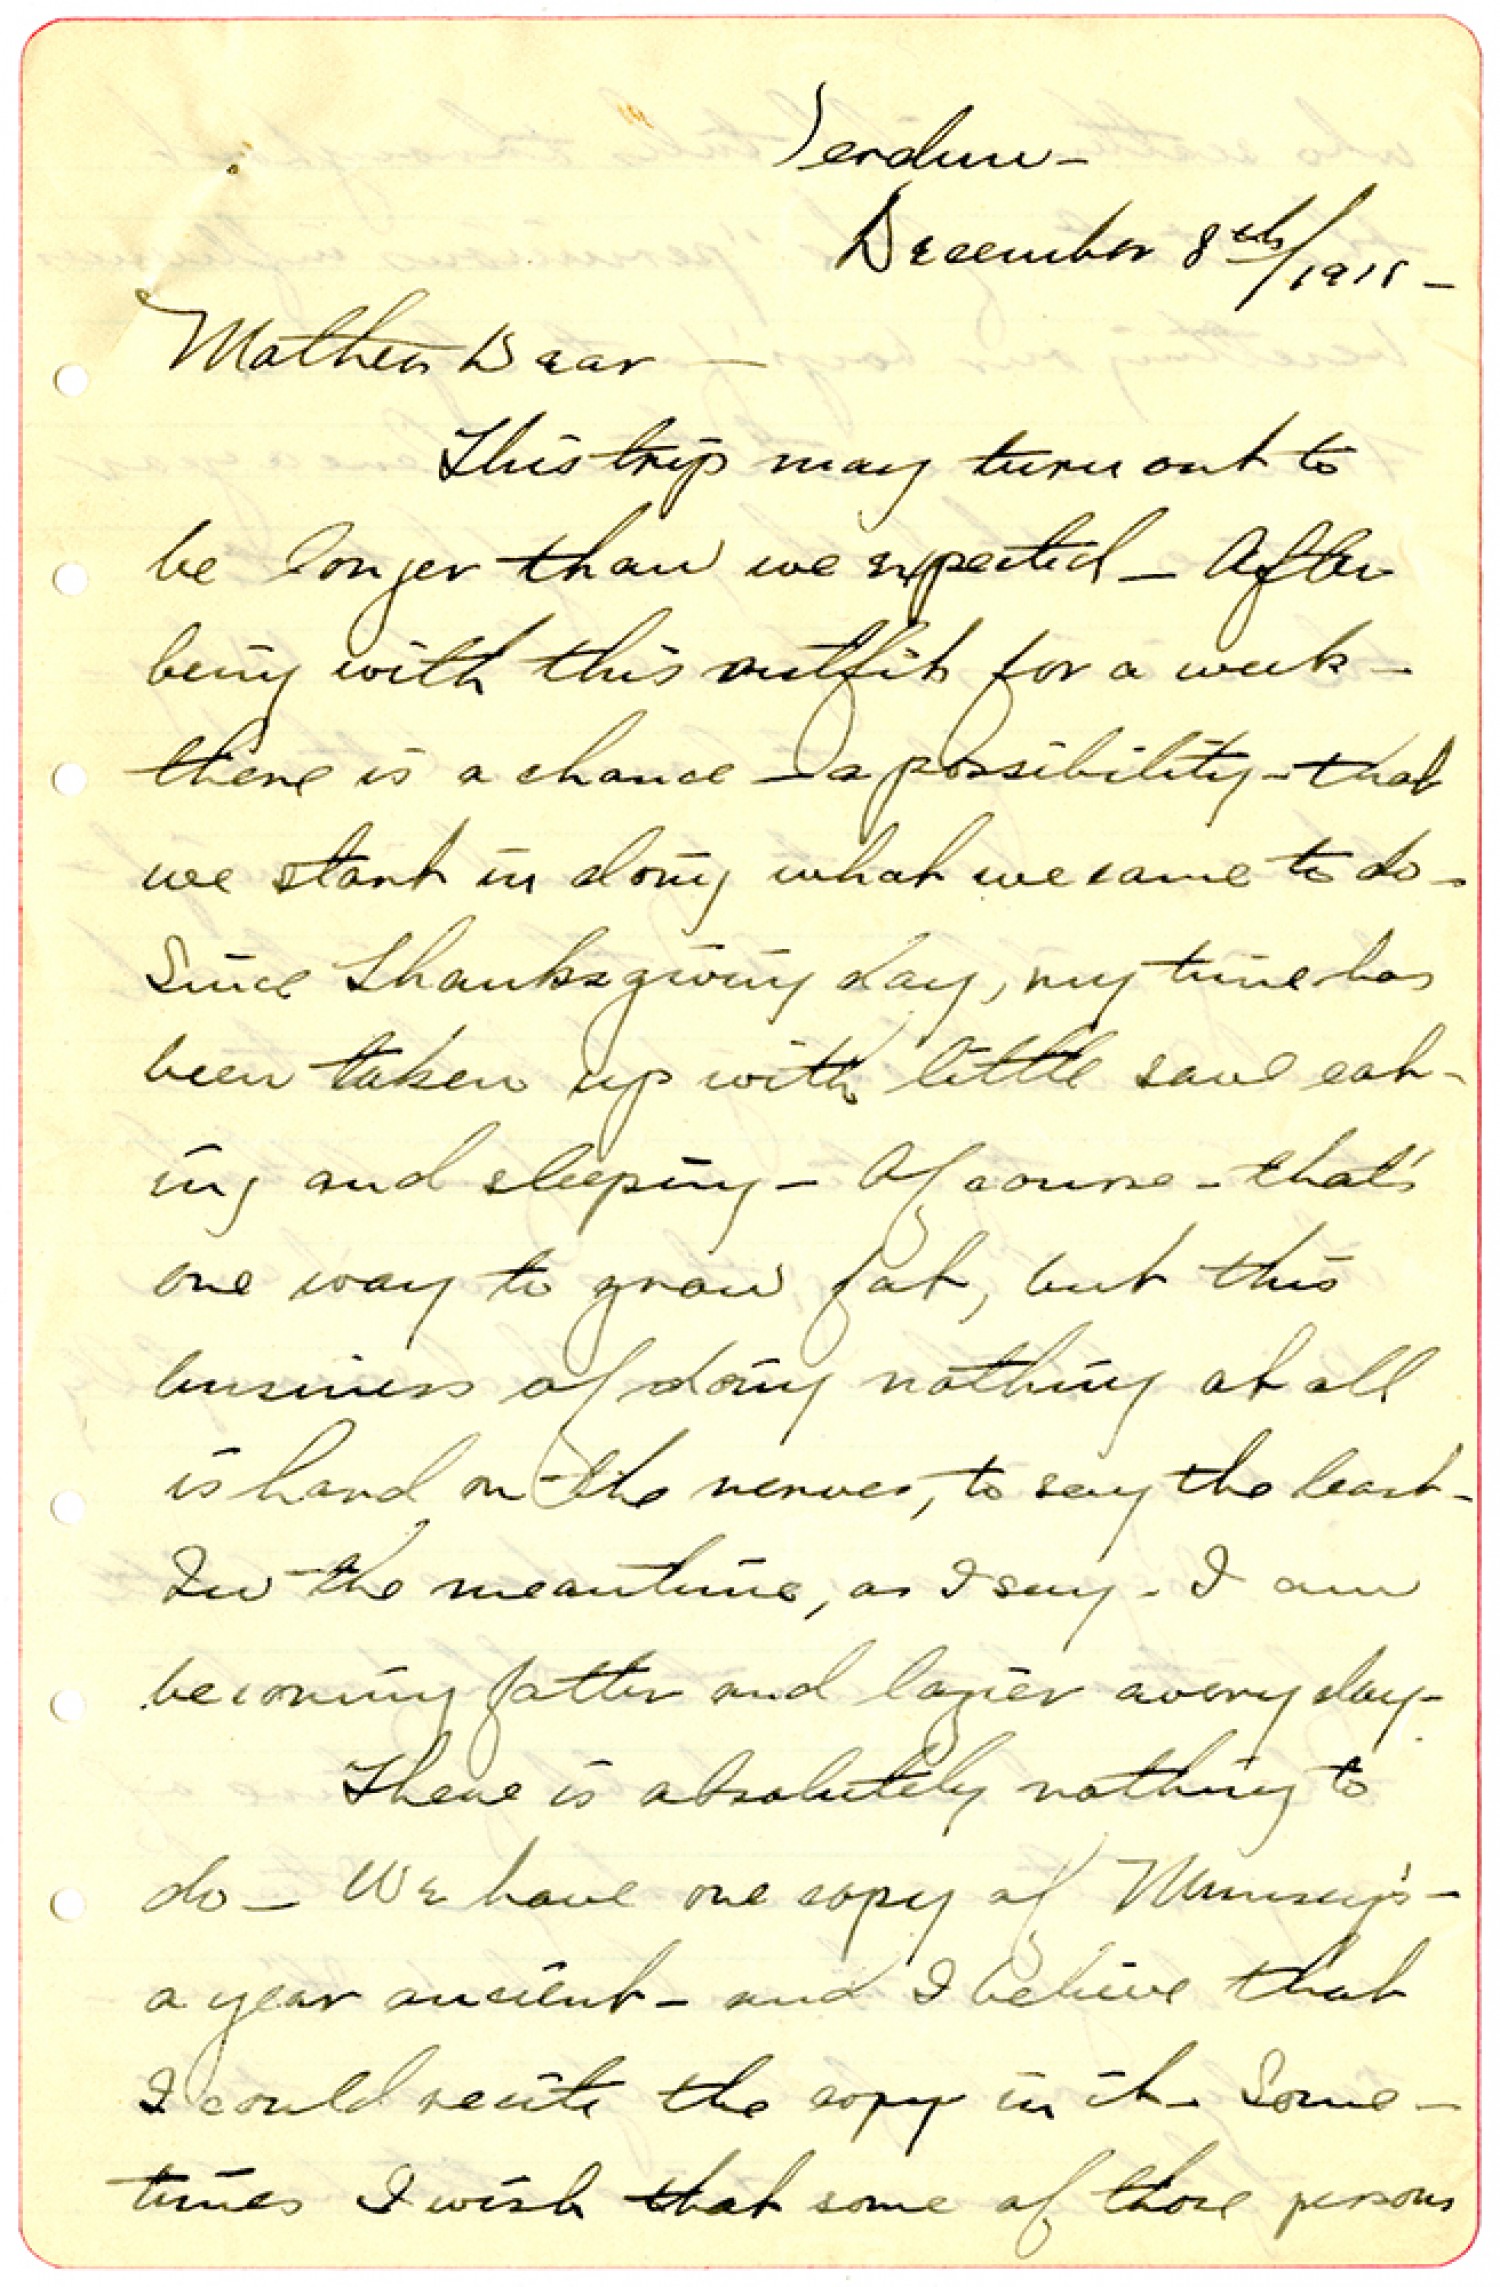 Verdun —
December 8th/1918 —
Mother Dear —
This trip may turn out to
be longer than we expected — After
being with this outfit for a week —
there is a chance — a possibility — that
we start in doing what we came to do —
Since Thanksgiving day, my time has
been taken up with little save eat-
ing and sleeping — Of course — that's
one way to grow fat, but this
business of doing nothing at all
is hard on the nerves, to say the least —
In the meantime, as I say — I am
becoming fatter and lazier every day —
There is absolutely nothing to
do — We have one copy of Munsey's —
a year ancient — and I believe that
I could recite the copy in it — Some-
times I wish that some of those persons